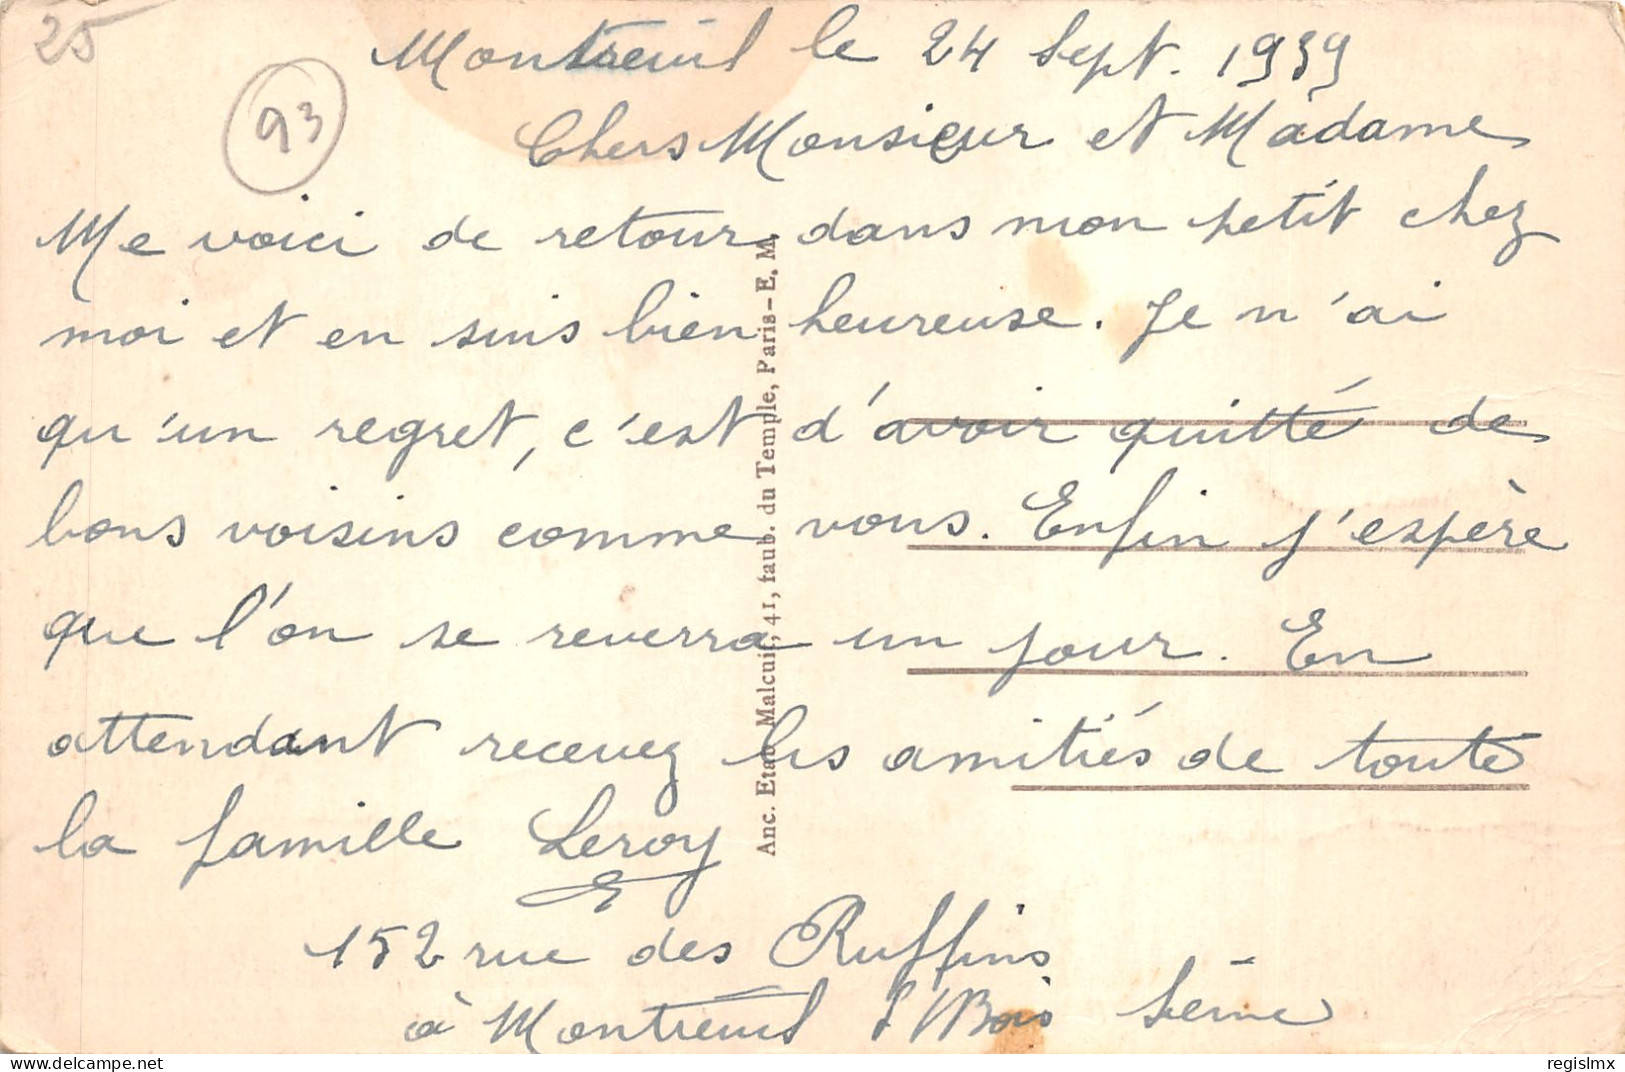 25
93
Montreuil le 24 Sept. 1939
Chers Monsieur et Madame
Me voici de retour dans mon petit chez
moi et en suis bien heureuse. Je n'ai
qu'un regret, c'est d'avoir quitté de
bons voisins comme vous. Enfin j'espère
que l'on se reverra un jour. En
attendant recevez les amitiés de toute
la famille Leroy
152 rue des Ruffins
à Montreuil s/Bois Seine
Anc. Etab Malcuit, 41, faub. du Temple, Paris-E. M.
delcampe.net
regislmx